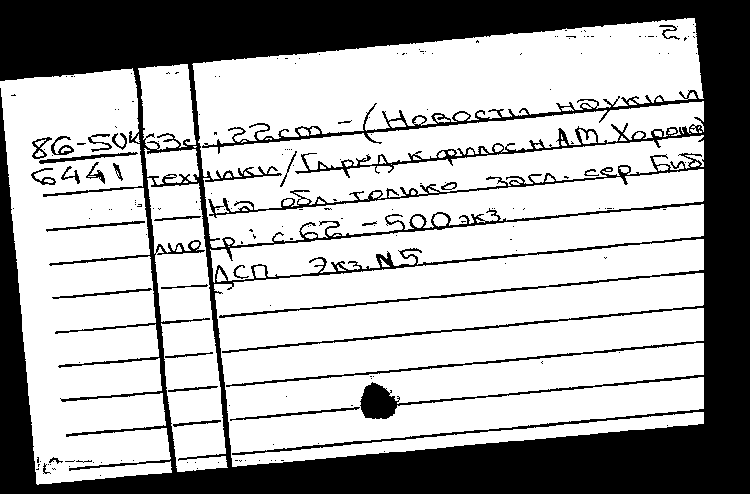 2.
86-50к 63с.; 22cm - (Новости науки и
6441 техники/Гл. ред. к. филос. н. А.М. Хорошев)
На обл. только загл. сер. Биб
лиогр.: с. 62. - 500 экз.
ДСП. Экз. N 5.